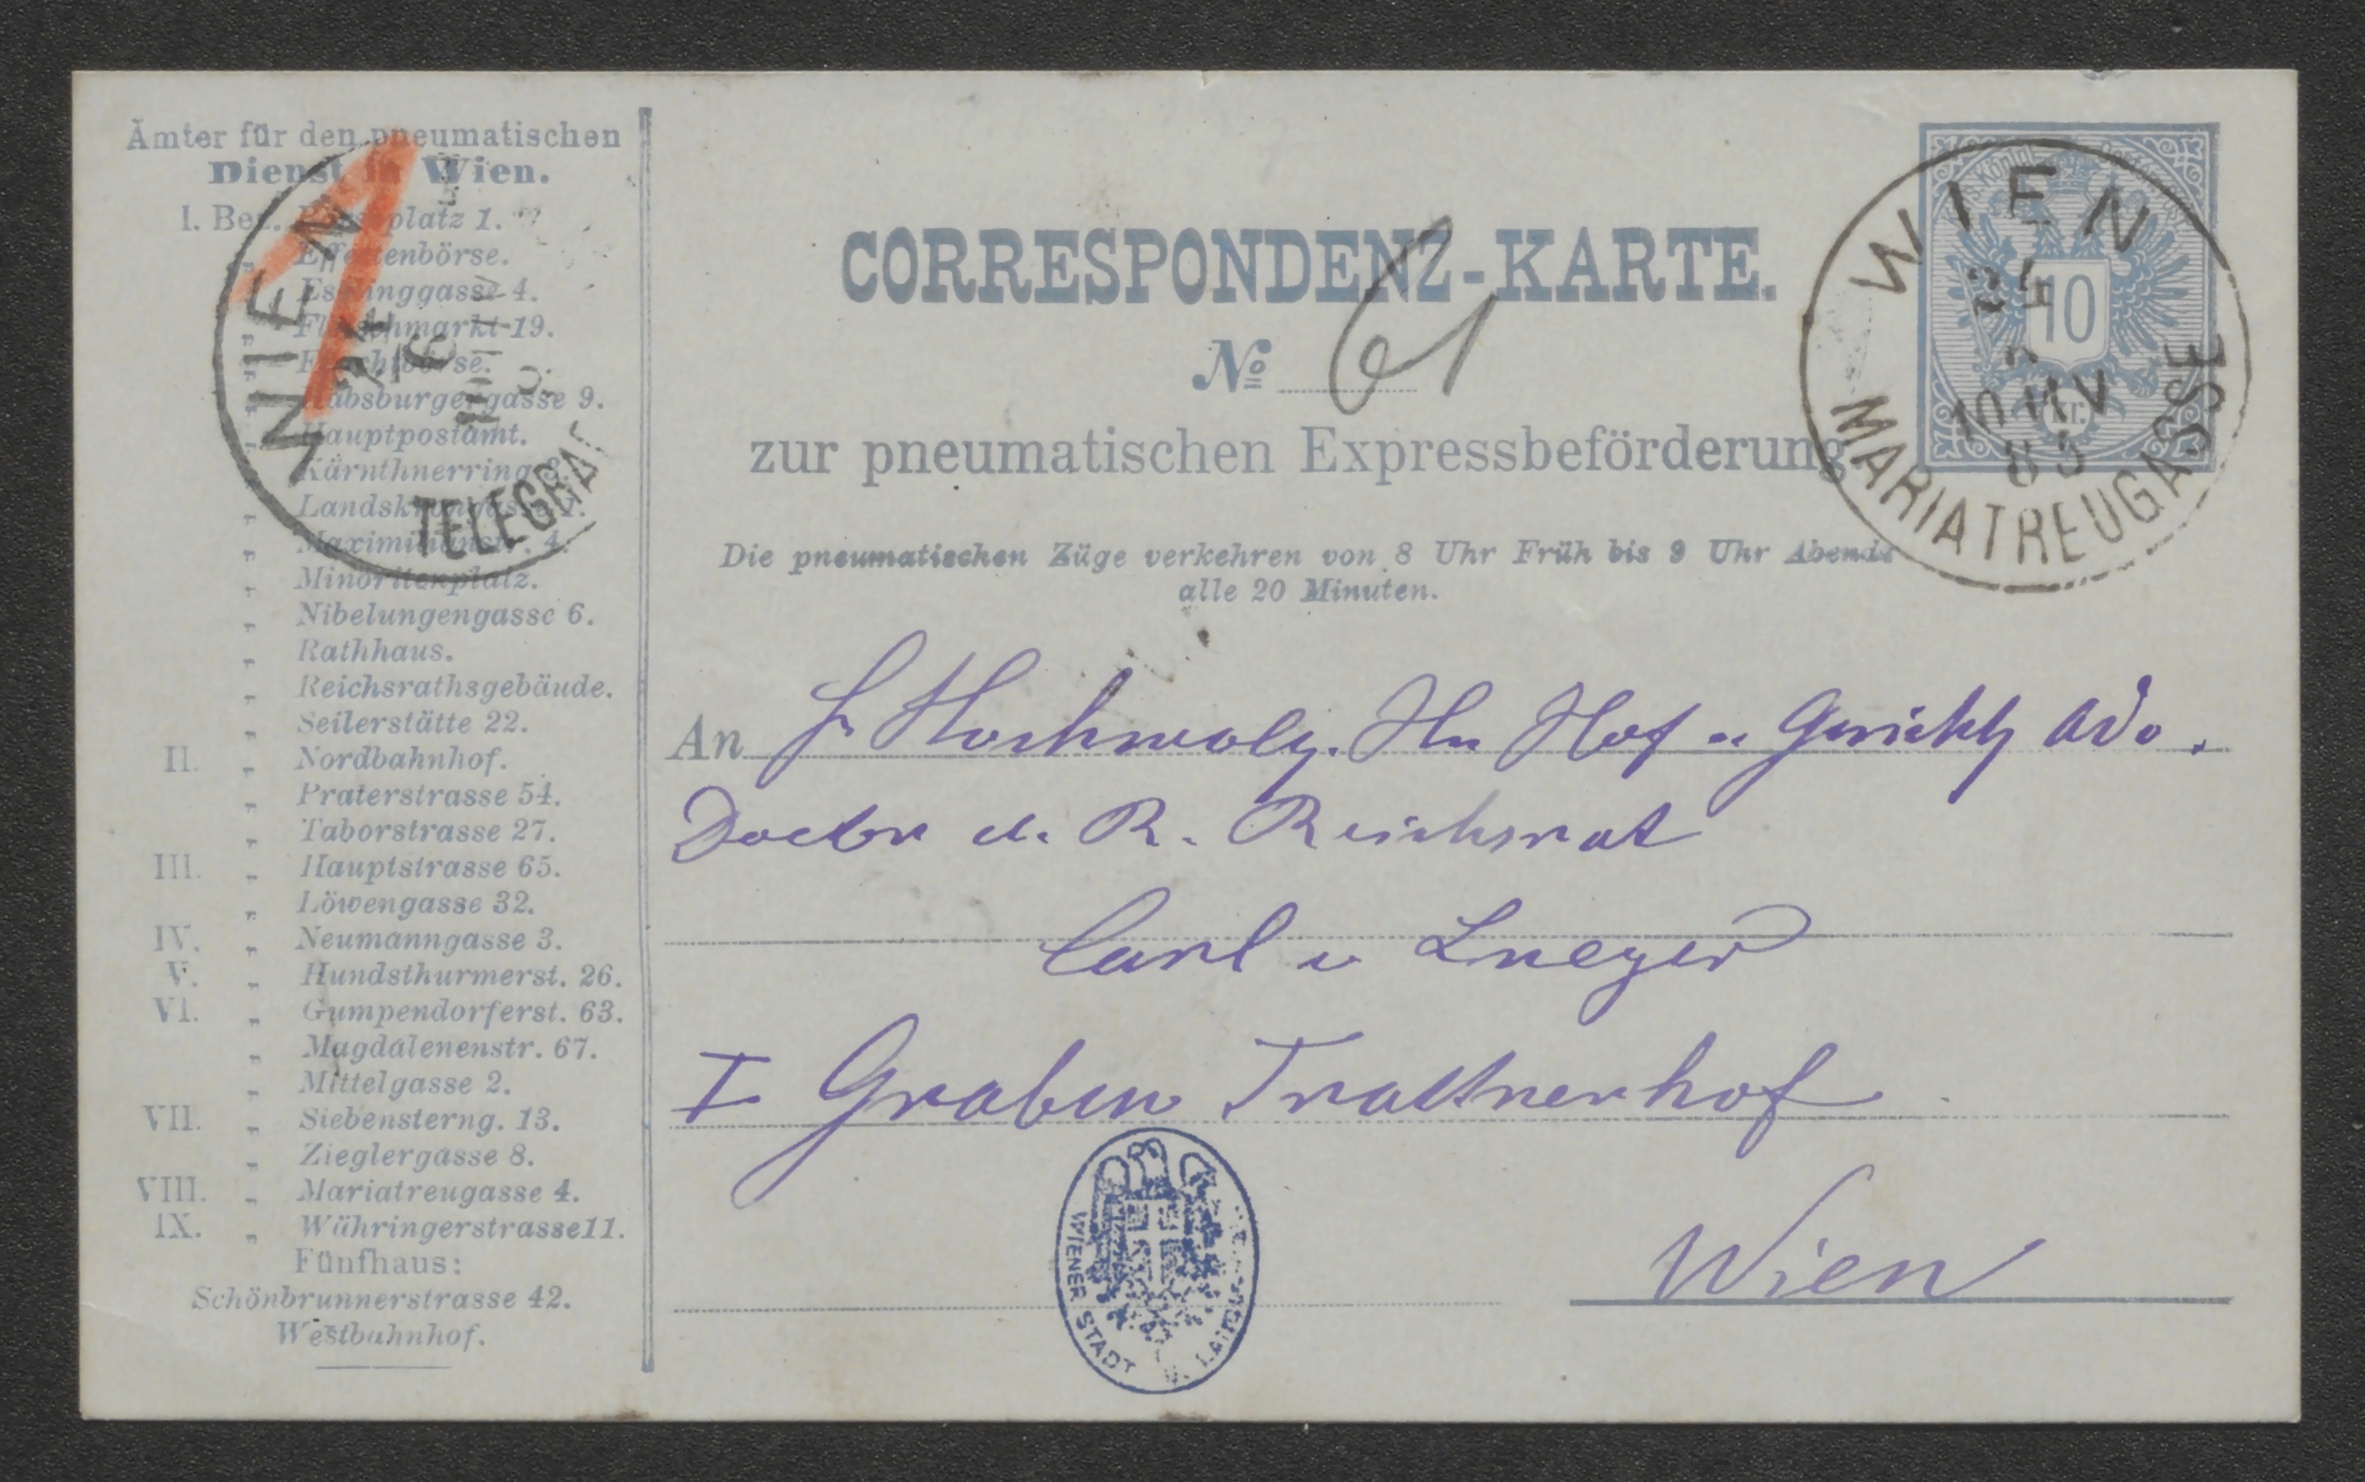 Ämter für den pneumatischen
Dienst in Wien.
I. Bez. Börseplatz 1.
„ Effectenbörse.
„ Esslinggasse 4.
„ Fleischmarkt 19.
„ Fruchtbörse.
„ Habsburgergasse 9.
„ Hauptpostamt.
„ Kärnthnerring
„ Landskrongasse
„ Maximilianstr. 4.
„ Minoritenplatz.
„ Nibelungengasse 6.
„ Rathhaus.
„ Reichsrathsgebäude.
„ Seilerstätte 22.
II. „ Nordbahnhof.
„ Praterstrasse 54.
„ Taborstrasse 27.
III. „ Hauptstrasse 65.
„ Löwengasse 32.
IV. „ Neumanngasse 3.
V. „ Hundsthurmerst. 26.
VI. „ Gumpendorferst. 63.
„ Magdalenenstr. 67.
„ Mittelgasse 2.
VII. „ Siebensterng. 13.
„ Zieglergasse 8.
VIII. „ Mariatreugasse 4.
IX. „ Währingerstrasse 11.
Fünfhaus:
Schönbrunnerstrasse 42.
Westbahnhof.
WIEN
TELEGRAF
CORRESPONDENZ-KARTE.
No 61
zur pneumatischen Expressbeförderung
Die pneumatischen Züge verkehren von 8 Uhr Früh bis 9 Uhr Abends
alle 20 Minuten.
WIEN
MARIATREUGASSE
10
An Sr Hochwolg. Hn Hof u Gerichts Adv.
Doctor d. R. Reichsrat
Carl v Lueger
I Graben Trattnerhof
Wien
WIENER STADT